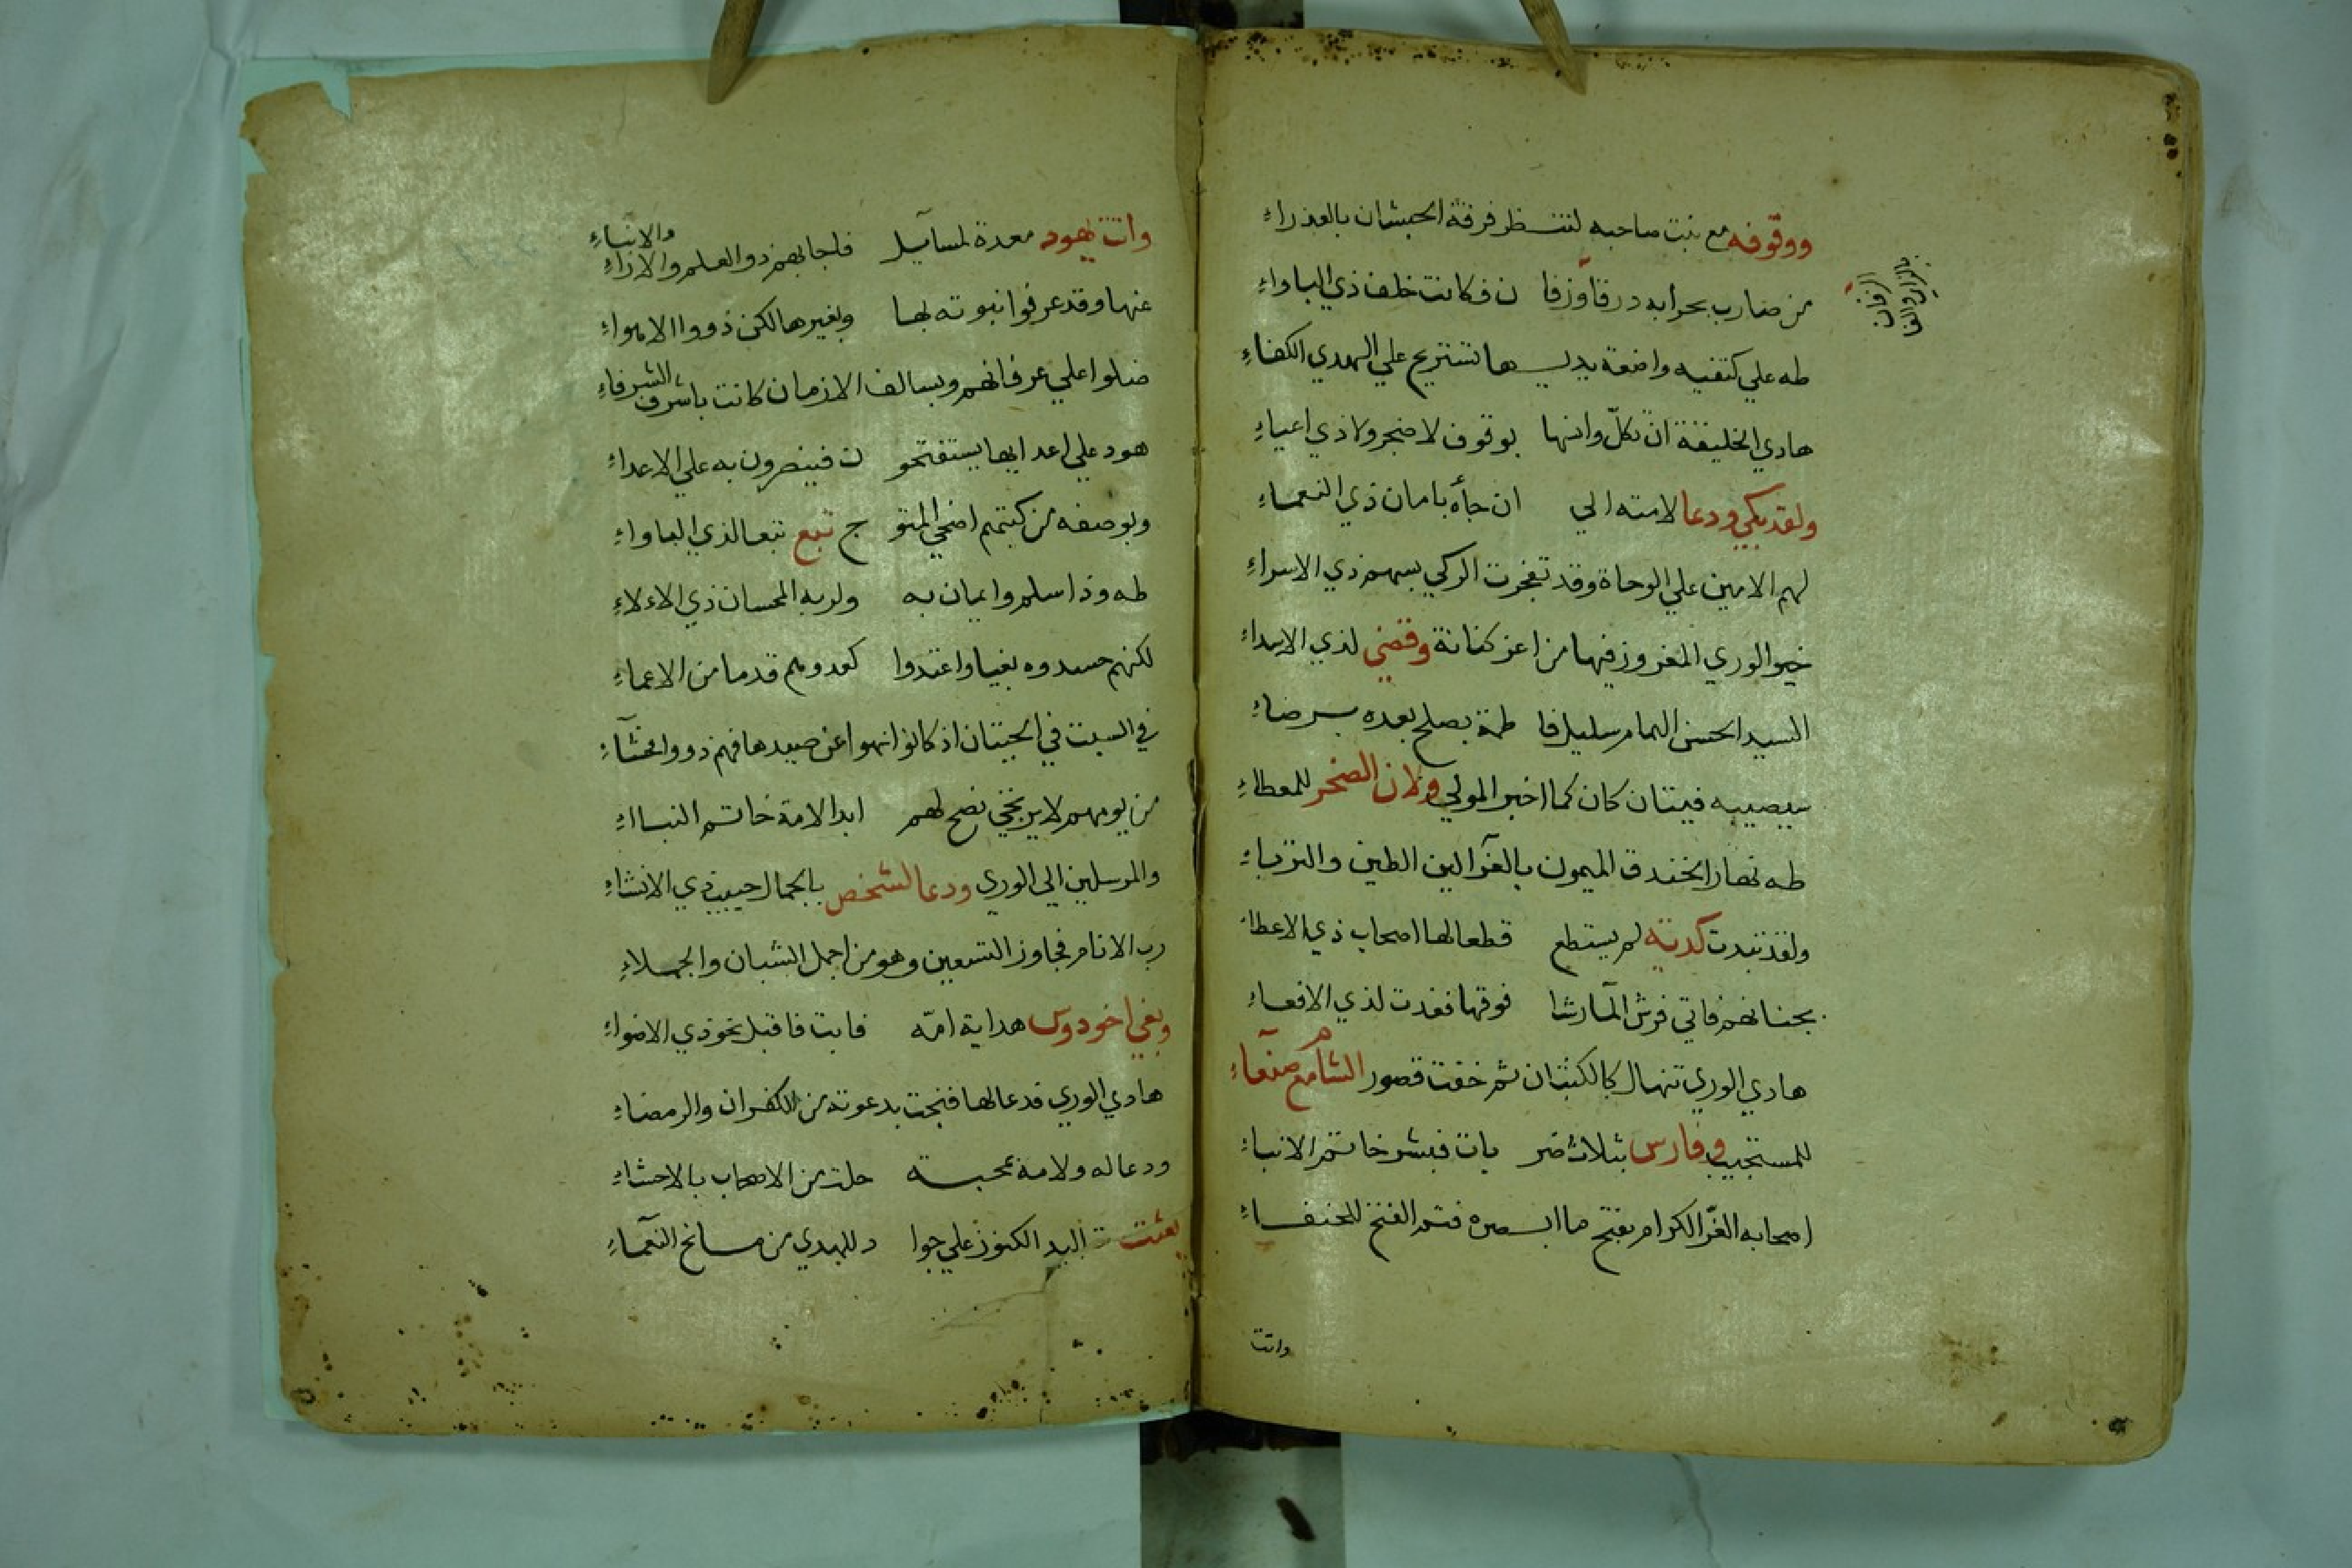 ووقوفه مع بنت صاحبه لتنظر فرقة الحبشان بالعذراء
من ضارب بحرابه درقا وزفا ن فكانت خلف ذي الباواء
طه علي كتفيه واضعة يديها تستريح علي الهدي الكفاء
هادي الخليقة ان تكل وانها بوقوف لا ضجر ولا ذي اعياء
ولقد بكي ودعا لامته الي ان جأه بامان ذي النعماء
لهم الامين علي الوحاة وقد تفجرت الركي بسهم ذي الاسراء
خير الوري المغروز فيها من اعز كنانة وقضي لذي الاسداء
السيد الحسن الهمام سليل فا طمة بصلح بعده برضاء
سيصيبه فيتان كان كما اخبر المولي ولان الصخر للمعطاء
طه نهار الخندق الميمون بالغرا لين الطين والترباء
ولقد تبدت كدية لم يستطع قطعا لها اصحاب ذي الاعطاء
بجنابهم فاتي فرش المآ رشا فوقها فغدت لذي الافعاء
هادي الوري تنهال كالكثبان ثم خفت قصور الشام مع صنعاء
للمستجيب وفارس بثلاث ضر بات فبشر خاتم الانباء
اصحابه الغر الكرام بفتح ما ابصره فتم الفتح للحنفاء
واتت
واتت يهود معدة لمسآيل فاجابهم ذو العلم والاراء
والانباء
عنها وقد عرفوا نبوته بها وبغيرها لكن ذووا الاهواء
ضلوا علي عرفانهم وبسالف الازمان كانت باشرف الشرفاء
هود علي اعدايها يستفتحو ن فينصرون به علي الاعداء
وبوصفه من كتبهم اضحي المتو ج تبع تبعا لذي الباواء
طه وذا سلم وايمان به ولربه المحسان ذي الاءلاء
لكنهم حسدوه بغيا واعتدوا كعدوهم قدما من الاعماء
في السبت في الحيتان اذ كانوا نهوا عن صيدها فهم ذووا فحشآء
من يومهم لا يرتجي نصح لهم ابدا لامة خاتم النباء
والمرسلين الي الوري ودعا لشخص بالجمال حبيب ذي الانشاء
رب الانام فجاوز التسعين وهو من اجمل الشبان والجملاء
وبغي اخو دوس هداية امه فابت فاقبل نحو ذي الاضواء
هادي الوري فدعا لها فنجت بدعوته من الكفران والرمضاء
ودعا له ولامه بمحبة حلت من الاصحاب بالاحشاء
بعثت اليه الكنوز علي جوا د للهدي من مانح النعمآء